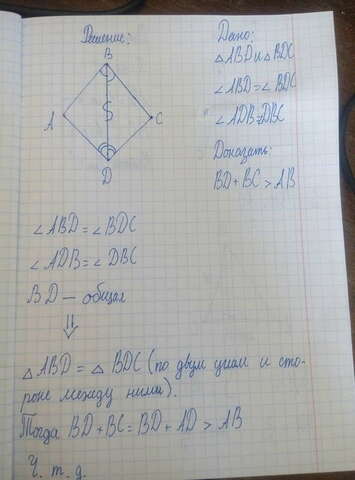 Решение:
Дано:
△ABD и △BDC
∠ABD = ∠BDC
∠ADB = DBC
Доказать:
BD + BC > AB
B
A
C
D
∠ABD = ∠BDC
∠ADB = ∠DBC
BD — общая
⇓
△ABD = △BDC (по двум углам и сто-
роне между ними).
Тогда BD + BC = BD + AD > AB
Ч. т. д.